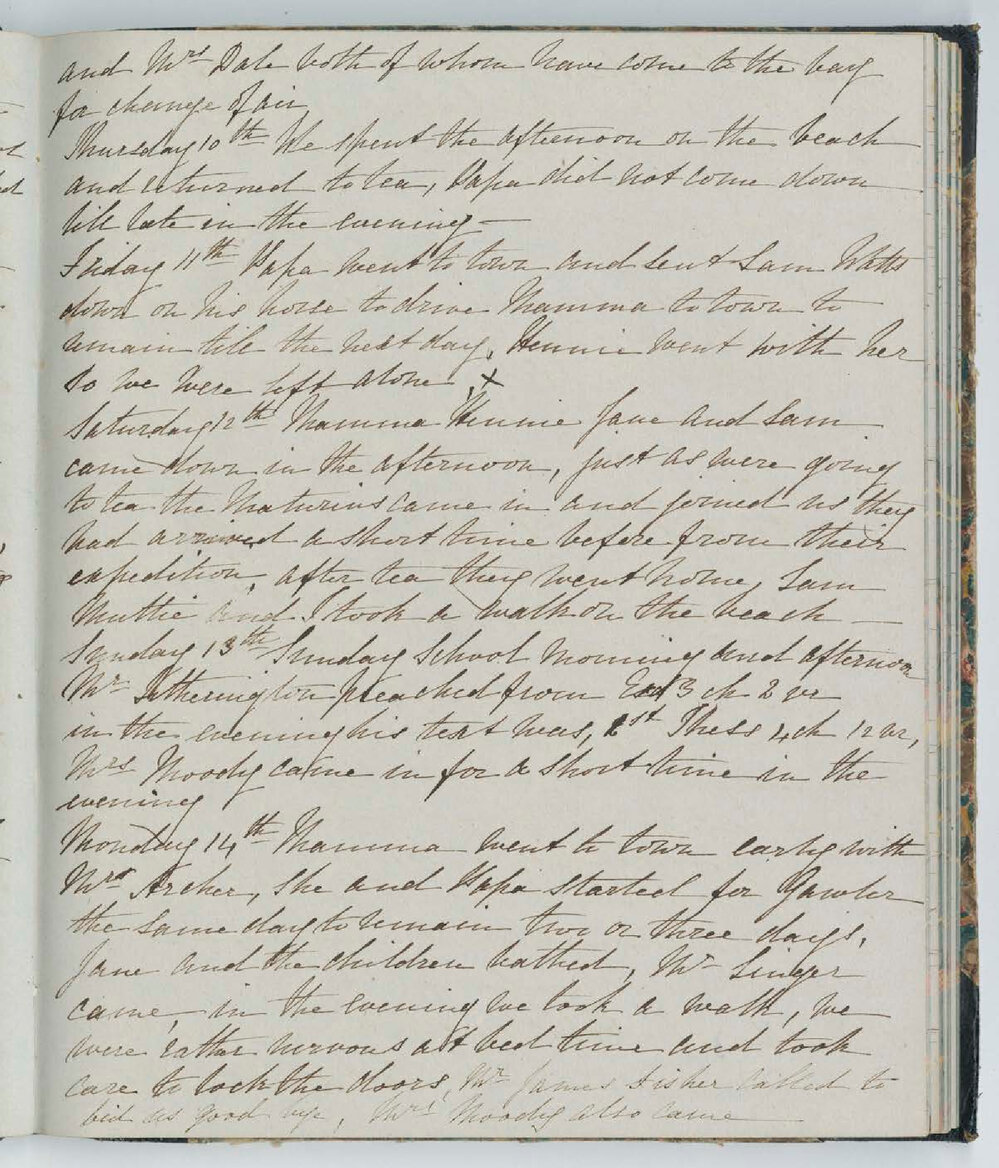 and Mrs Dale both of whom have come to the bay
for change of air
Thursday 10th We spent the afternoon on the beach
and returned to tea, Papa did not come down
till late in the evening —
Friday 11th Papa went to town and sent Sam Watts
down on his horse to drive Mamma to town to
remain till the next day, Hennie went with her
so we were left alone, x
Saturday 12th Mamma Hennie Jane and Sam
came down in the afternoon, just as were going
to tea the Maturins came in and joined us they
had arrived a short time before from their
expedition, after tea they went home, Sam
Muttie and I took a walk on the beach —
Sunday 13th Sunday school morning and afternoon
Mr Hetherington preached from 3 ch 2 vr
in the evening his text was, 1st Thess 4 ch 12 vr,
Mrs Moody came in for a short time in the
evening
Monday 14th Mamma went to town early with
Mrs Archer, She and Papa started for Gawler
the same day to remain two or three days,
Jane and the children bathed, Mr Singer
came, in the evening we took a walk, we
were rather nervous at bed time and took
care to lock the doors, Mr James Fisher called to
bid us good bye, Mrs Moody also came